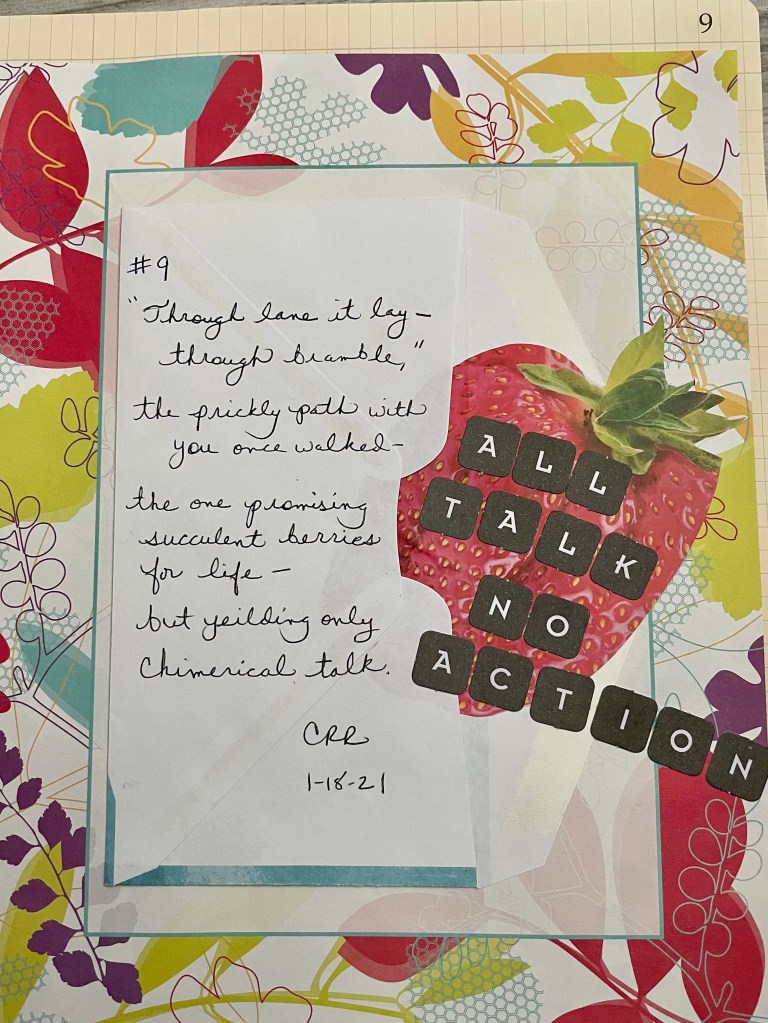 9
#9
"Through lane it lay –
through bramble,"
the prickly path with
you once walked –
the one promising
succulent berries
for life –
but yeilding only
Chimerical talk.
CRR
1-18-21
ALL
TALK
NO
ACTION